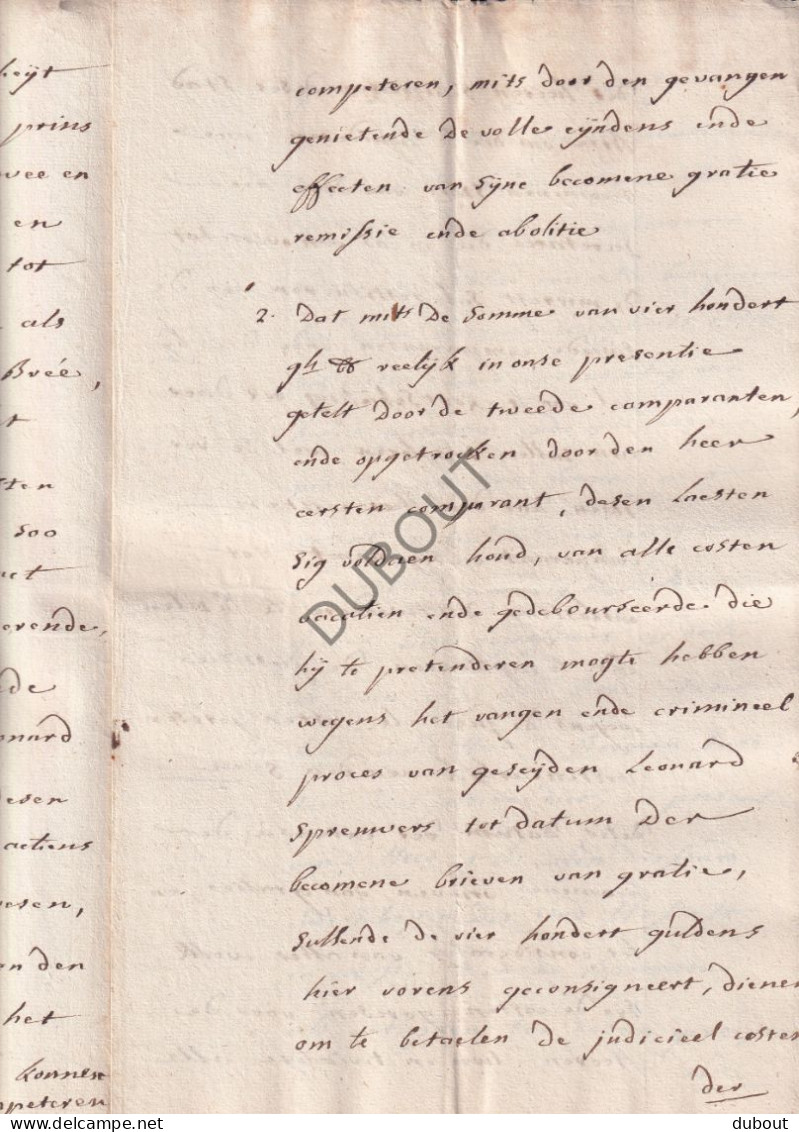 heijt
prins
vee en
en
tot
als
Breé,
t
sten
soo
het
erende,
de
onard
desen
actiens
esen,
en den
het
konnen
mpeteren
competeren, mits door den gevangen
genietende de volle eijndens ende
effecten van sijne becomene gratie
remissie ende abolitie
2. Dat mits de somme van vier hondert
gl reelijk in onse presentie
getelt door de tweede comparanten,
ende opgetrocken door den heer
eersten comparant, desen laesten
sig voldaen houd, van alle costen
vacatien ende gedebourseerde die
hij te pretenderen mogte hebben
wegens het vangen ende crimineel
proces van geseijden Leonard
Spreuwers tot datum der
becomene brieven van gratie,
sullende de vier hondert guldens
hier vorens geconsigneert, dienen
om te betaelen de judicieel costen
der
DUBOUT
delcampe.net
dubout